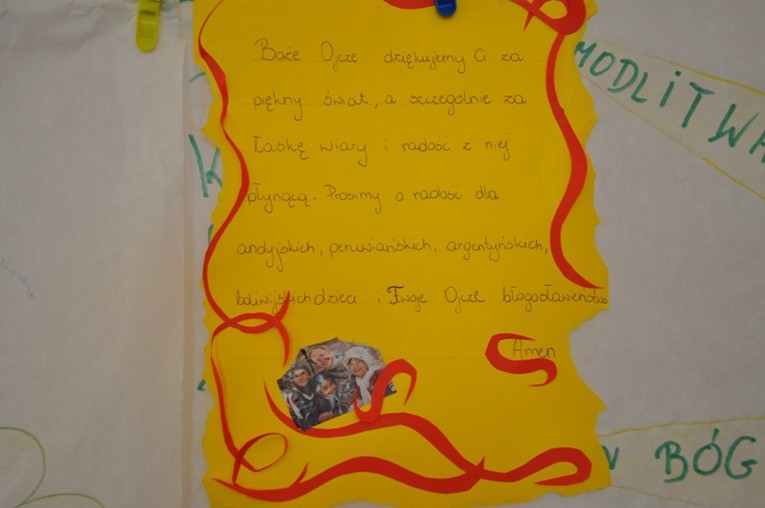 Boże Ojcze dziękujemy Ci za
piękny świat, a szczególnie za
łaskę wiary i radość z niej
płynącą. Prosimy o radość dla
andyjskich, peruwiańskich, argentyńskich,
boliwijskich dzieci i Twoje Ojcze błogosławieństwo
Amen
MODLITWA
K
W BÓG